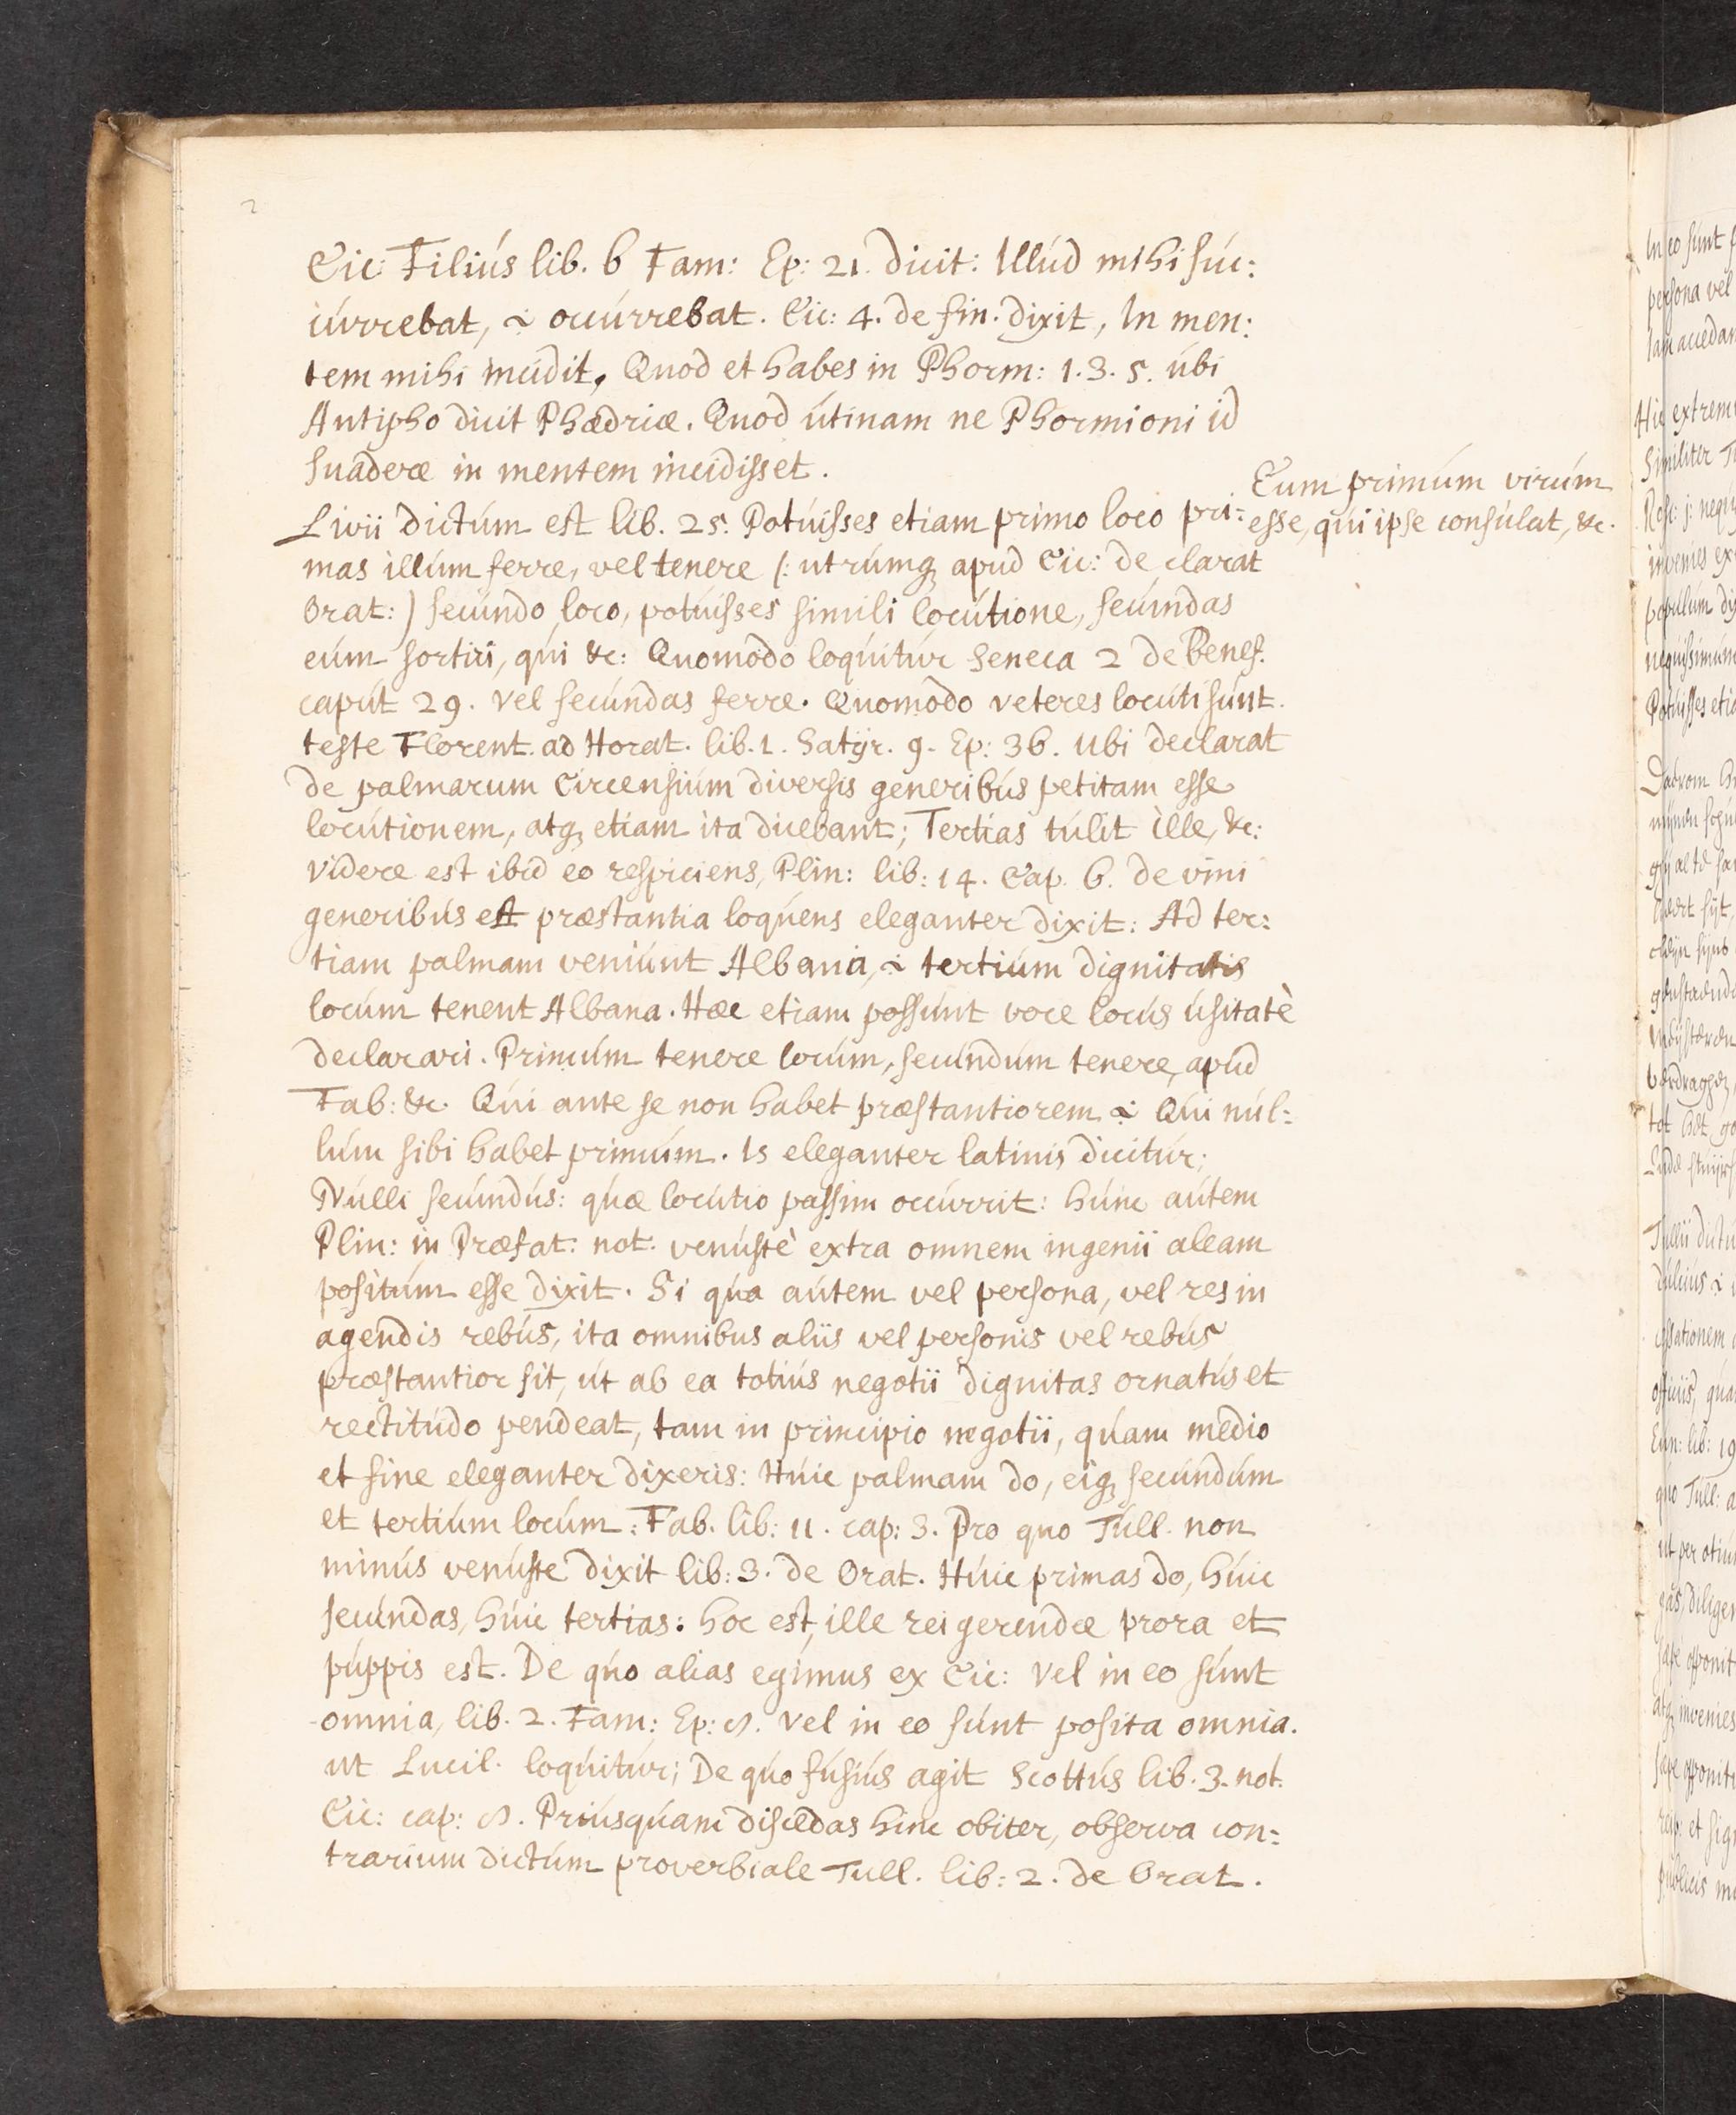 2
Cic: Filiús lib. 6 Fam: Ep: 21. dicit: Illúd mihi súc:
cúrrebat, ⁊ occúrrebat. Cic: 4. de fin. dixit, In men:
tem mihi incidit, Quod et habes in Phorm: 1. 3. 5. úbi
Antipho dicit Phædriæ. Quod útinam ne Phormioni id
suaderæ in mentem incidisset.
Eum primúm virúm
esse, qúi ipse consúlat, &c.
Livii dictúm est lib. 25. Potúisses etiam primo loco pri:
mas illúm ferre, vel tenere (: utrúmq apud Cic: de clarat
Orat:) secúndo loco, potúisses simili locútione, secúndas
eúm sortiri, qúi &c: Quomodo loqúitúr Seneca 2 de Benef.
capút 29. vel secúndas ferre. Quomodo veteres locúti súnt.
teste Florent. ad Horat. lib. 1. Satyr. 9. Ep: 36. ubi declarat
de palmarum Circensiúm diversis generibús petitam esse
locútionem, atq etiam ita dicebant; Tertias túlit ille, &c:
videre est ibid eo respiciens, Plin: lib: 14. Cap. 6. de vini
generibús et præstantia loqúens eleganter dixit: Ad ter:
tiam palmam veniúnt Albana, ⁊ tertiúm dignitatis
locúm tenent Albana. Hæc etiam possúnt voce locús úsitatè
declarari. Primúm tenere locúm, secúndúm tenere, apúd
Fab: &c. Qúi ante se non habet præstantiorem ⁊ Qúi núl:
lúm sibi habet primúm. Is eleganter latinis dicitúr;
Núlli secúndús: qúæ locútio passim occúrrit: húnc aútem
Plin: in Præfat: not. venústè extra omnem ingenii aleam
positúm esse dixit. Si qúa aútem vel persona, vel res in
agendis rebús, ita omnibus aliis vel personis vel rebús
præstantior sit, út ab ea totiús negotii dignitas ornatús et
rectitúdo pendeat, tam in principio negotii, qúam medio
et fine eleganter dixeris: Húic palmam do, eiq secúndúm
et tertiúm locúm: Fab. lib: 11. cap: 3. Pro quo Túll. non
minús venúste dixit lib: 3. de Orat. Húic primas do, húic
secúndas, húic tertias: hoc est, ille rei gerendæ prora et
púppis est. De qúo alias egimus ex Cic: vel in eo súnt
omnia, lib. 2. Fam: Ep: vel in eo súnt posita omnia.
ut Lucil. loqúitúr; De qúo fúsiús agit Scottús lib. 3. not.
Cic: cap: Priúsqúam discedas hinc obiter, observa con:
trarium dictúm proverbiale Tull. lib: 2. de Orat.